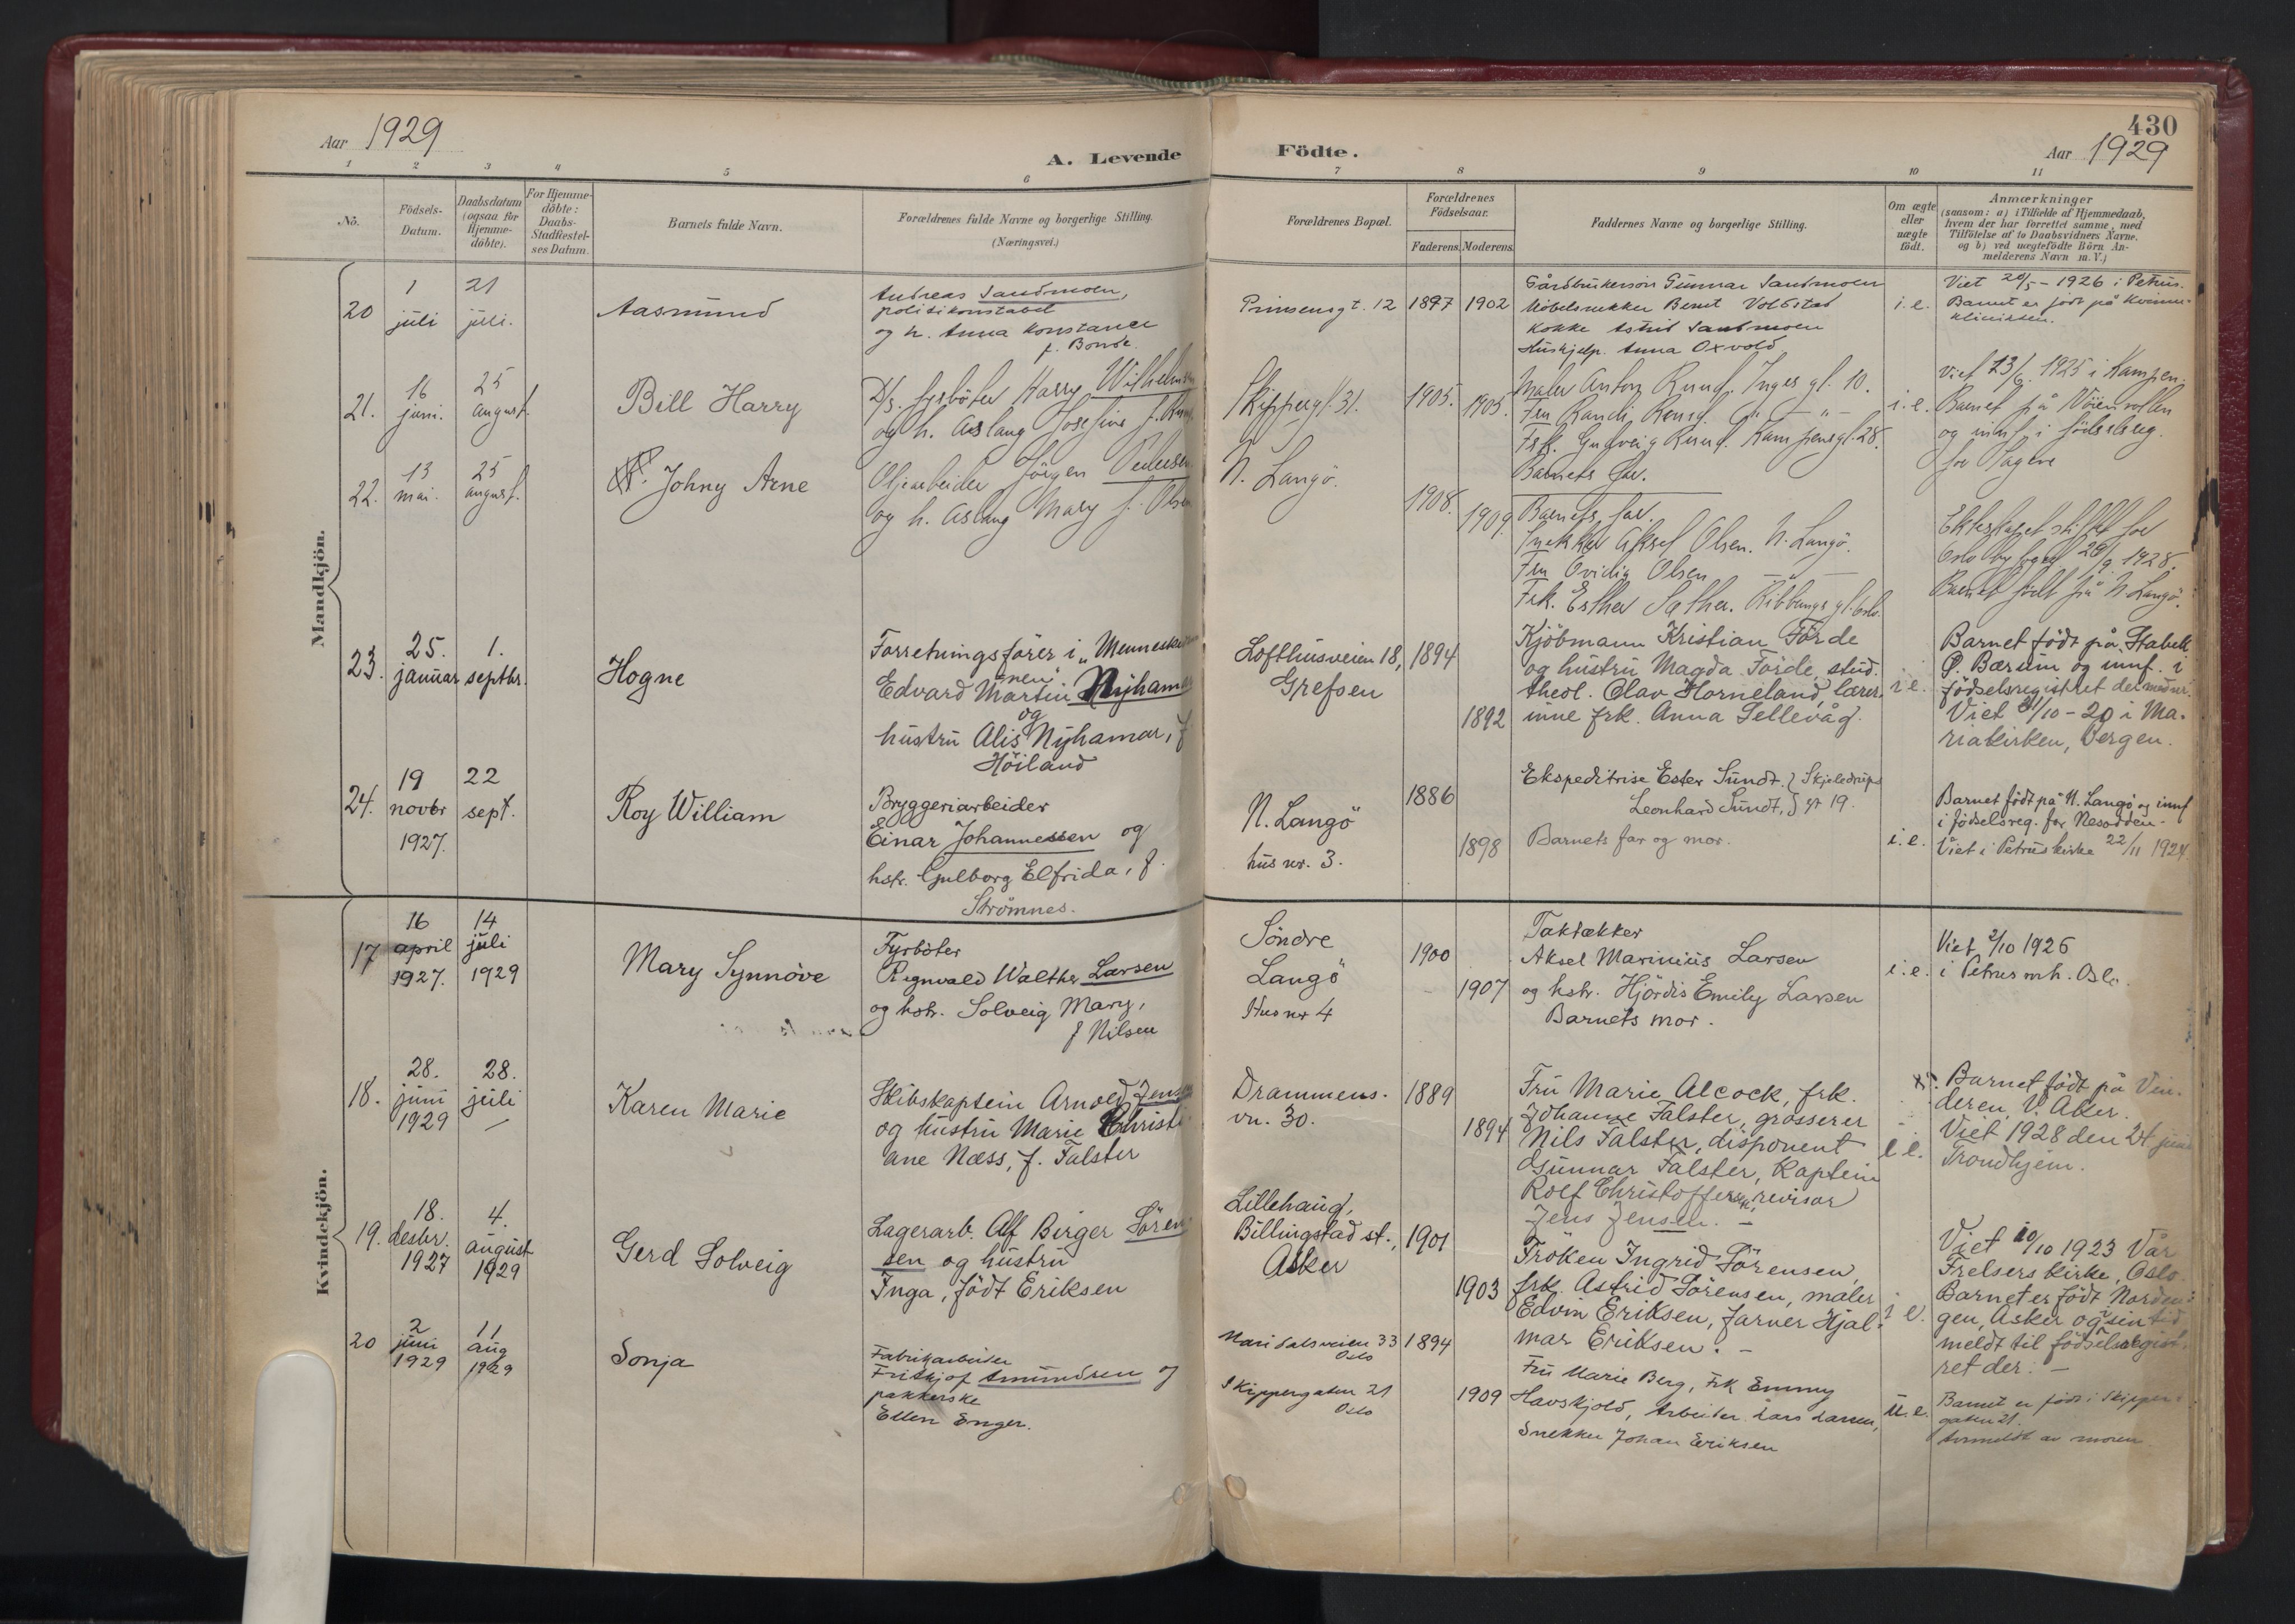 Aar 1929
A. Levende Födte.
430
Aar 1929
1 2 3 4 5 6 7 8 9 10 11
Nö.
Födsels-Datum.
Daabsdatum (ogsaa for Hjemme-döbte).
For Hjemme-döbte: Daabs-Stadfæstel-ses Datum.
Barnets fulde Navn.
Forældrenes fulde Navne og borgerlige Stilling.
(Næringsvei.)
Forældrenes Bopæl.
Forældrenes Födselsaar.
Faderens. Moderens.
Faddernes Navne og borgerlige Stilling.
Om ægte eller uægte födt.
Anmærkninger
(saasom: a) i Tilfælde af Hjemmedaab,
hvem der har forrettet samme, med
Tilföielse af to Daabsvidners Navne,
og b) ved uægtefödte Börn An-
melderens Navn m. V.)
Mandkjön.
20
1 juli
21 juli.
Aasmund
Andreas Sandmoen,
politikonstabel
og h. Anna Konstance
f. Bonde.
Prinsensgt. 12
1897
1902
Gårdbrukerson Gunnar Sandmoen
Möbelsnekker Bernt Volbstad
Kokke Astrid Sandmoen
Hushjelp. Anna Oxvold
i. e.
Viet 20/5 - 1926 i Petrus.
Barnet er födt på Kvinne-
klinikken.
21.
16 juni.
25 august.
Bill Harry
D/s. fyrböter Harry Wilhelmsen
og h. Aslaug Josefine f. Ruud
Skippergt. 31.
1905.
1905.
Maler Anton Ruud. Inges gt. 10.
Fru Randi Ruud. - " -
Frk. Gudveig Ruud. Kampensgt. 28.
Barnets far.
i. e.
Viet 13/6. 1925 i Kampen.
Barnet på Vöienvollen
og innf. i födselsreg.
for Hagene
22.
13 mai.
25 august.
Johny Arne
Oljearbeider Jörgen Pedersen
og h. Aslaug Mary f. Olsen
N. Langö.
1908.
1909.
Barnets far.
Snekker Aksel Olsen. N. Langö.
Fru Ovidia Olsen - " -
Frk. Esther Sæther. Ribbungs gt. Oslo.
Ekteskapet stiftet for
Oslo byfoged 29/9 1928.
Barnet födt på N. Langö.
23.
25. januar
1. septbr.
Hogne
Forretningsförer i "Menneske
nen"
Edvard Martin Nyhamar
og
hustru Alis Nyhamar, f
Höiland
Lofthusveien 18,
Grefsen
1894
1892
Kjöbmann Kristian Förde
og hustru Magda Förde, stud.
theol. Olav Horneland, lærer-
inne frk. Anna Sellevåg.
i e.
Barnet födt på Stabek
Ö. Bærum og innf. i
födselsregistret dermed nr.
Viet 31/10 - 20 i Ma-
riakirken, Bergen.
24.
19 novbr 1927.
22 sept.
Roy William
Bryggeriarbeider
Einar Johannessen og
hstr. Gulborg Elfrida, f.
Strömnes.
N. Langö
hus nr. 3.
1886
1898
Ekspeditrise Ester Sundt } Skjeldrups
Leonhard Sundt, } gt 19.
Barnets far og mor.
i. e.
Barnet födt på N. Langö og innf
i födselsreg. for Nesodden.
Viet i Petruskirke 22/11 1924
Kvindekjön.
17
16 april 1927.
14 juli 1929
Mary Synnöve
Fyrböter
Rignvald Walther Larsen
og hstr. Solveig Mary,
f Nilsen
Söndre
Langö
Hus nr 4
1900
1907
Taktækker
Aksel Marinius Larsen
og hstr. Hjördis Emily Larsen
Barnets mor.
i. e.
Viet 2/10 1926
i Petrus mh. Oslo
18.
28. juni 1929
28. juli
Karen Marie
Skibskaptein Arnold Jensen
og hustru Marie Christi-
ane Næss, f. Falster
Drammens-
vn. 30.
1889
1894
Fru Marie Alcock, frk.
Johanne Falster, grosserer
Nils Falster, disponent
Gunnar Falster, Kaptein
Rolf Christoffersen, revisor
Jens Jensen. -
i e.
Barnet födt på Vin-
deren, V. Aker.
Viet 1928 den 24 juni
Trondhjem.
19.
18. desbr. 1927
4. august 1929
Gerd Solveig
Lagerarb. Alf Birger Sören-
sen og hustru
Inga, födt Eriksen
Lillehaug,
Billingstad st.,
Asker
1901
1903
Fröken Ingrid Sörensen,
frk. Astrid Sörensen, maler
Edvin Eriksen, farver Hjal-
mar Eriksen. -
i e.
Viet 20/10 1923 Vår
Frelsers kirke, Oslo.
Barnet er födt Norden-
gen, Asker og i sin tid
meldt til födselsregist-
ret der. -
20
2 juni 1929
11 aug 1929
Sonja
Fabrikarbeider
Fritkjof Amundsen og
pakkerske
Ellen Enger.
Maridalsveien 33
Oslo
Skippergaten 21
Oslo
1894
1909
Fru Marie Berg, Frk Emmy
Havskjold, Arbeider Lars Larsen,
Snekker Johan Eriksen
u. e.
Barnet er födt i Skipper-
gaten 21.
Anmeldt av moren